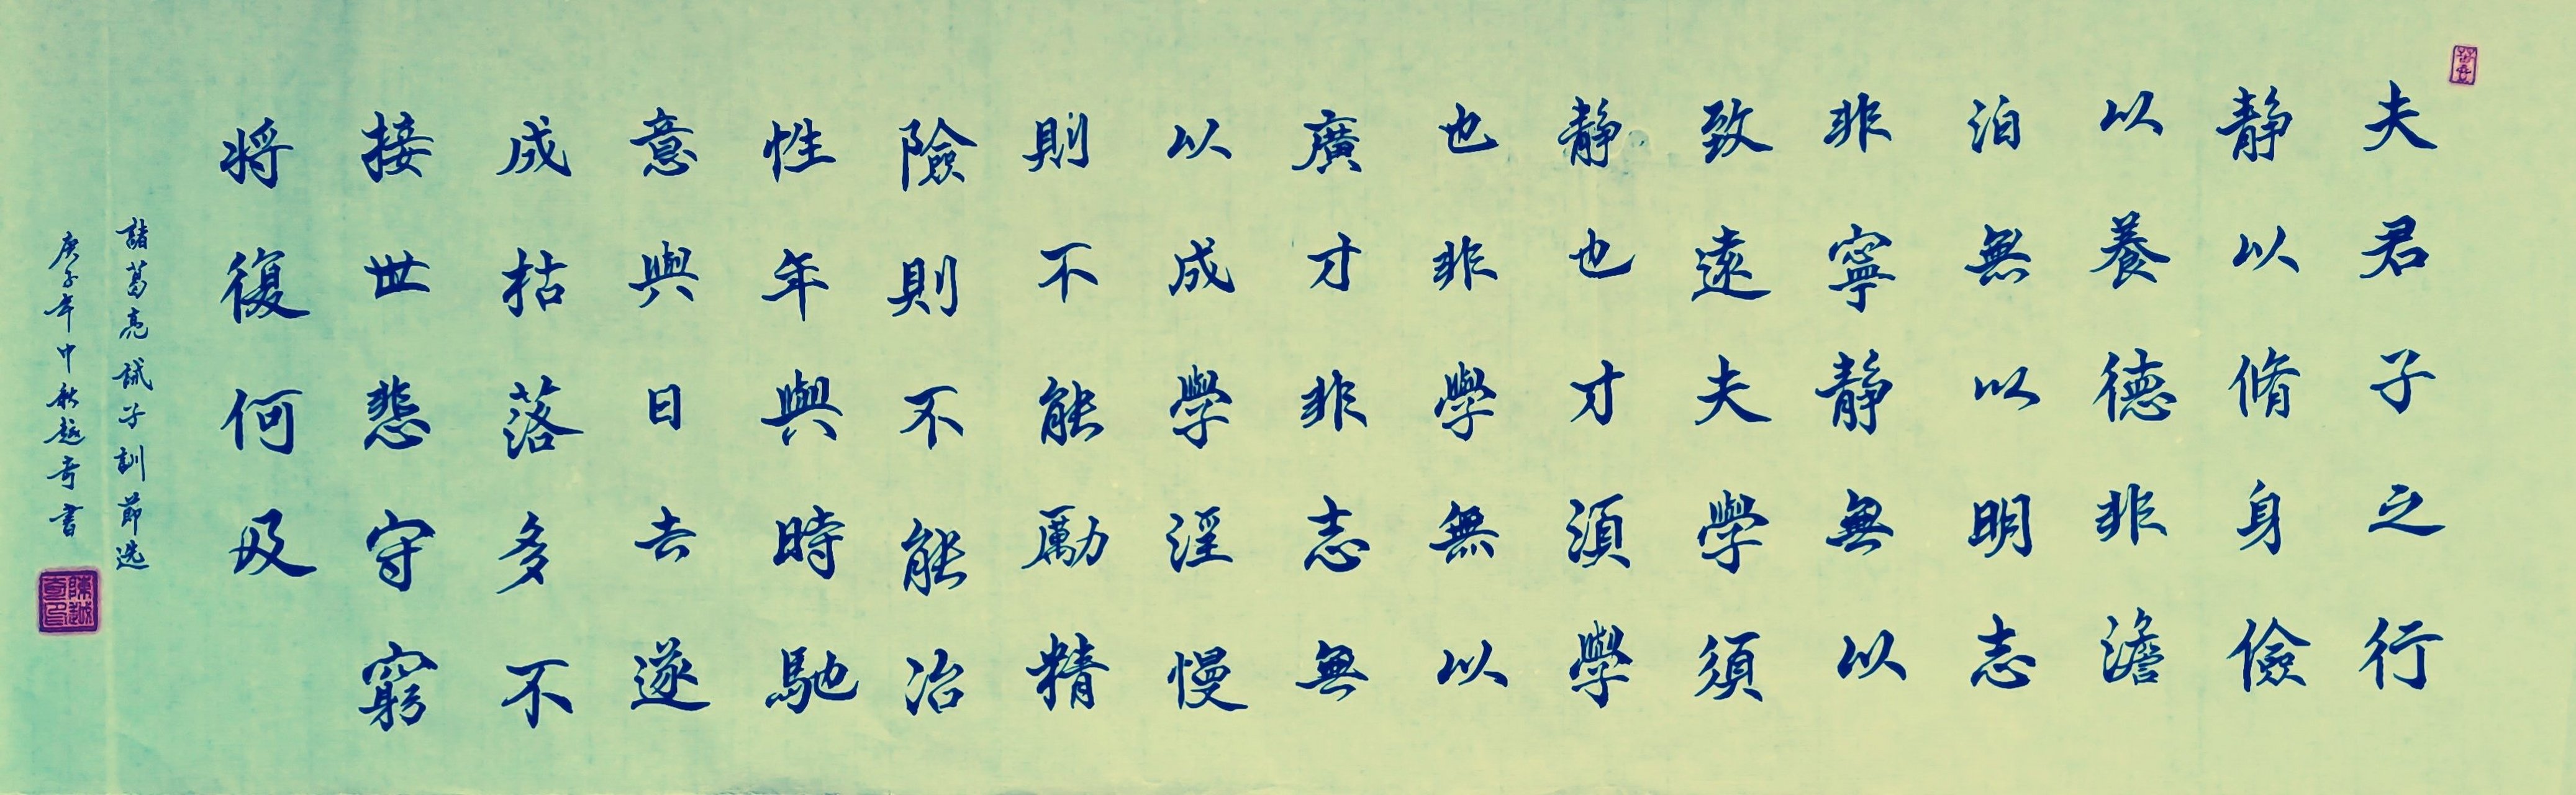 夫君子之行
静以脩身儉
以養德非澹
泊無以明志
非寧静無以
致遠夫學須
静也才須學
也非學無以
廣才非志無
以成學淫慢
則不能勵精
險則不能治
性年與時馳
意與日去遂
成枯落多不
接世悲守窮
将復何及
諸葛亮誡子訓節选
庚子年中秋越奇書
陳越奇印